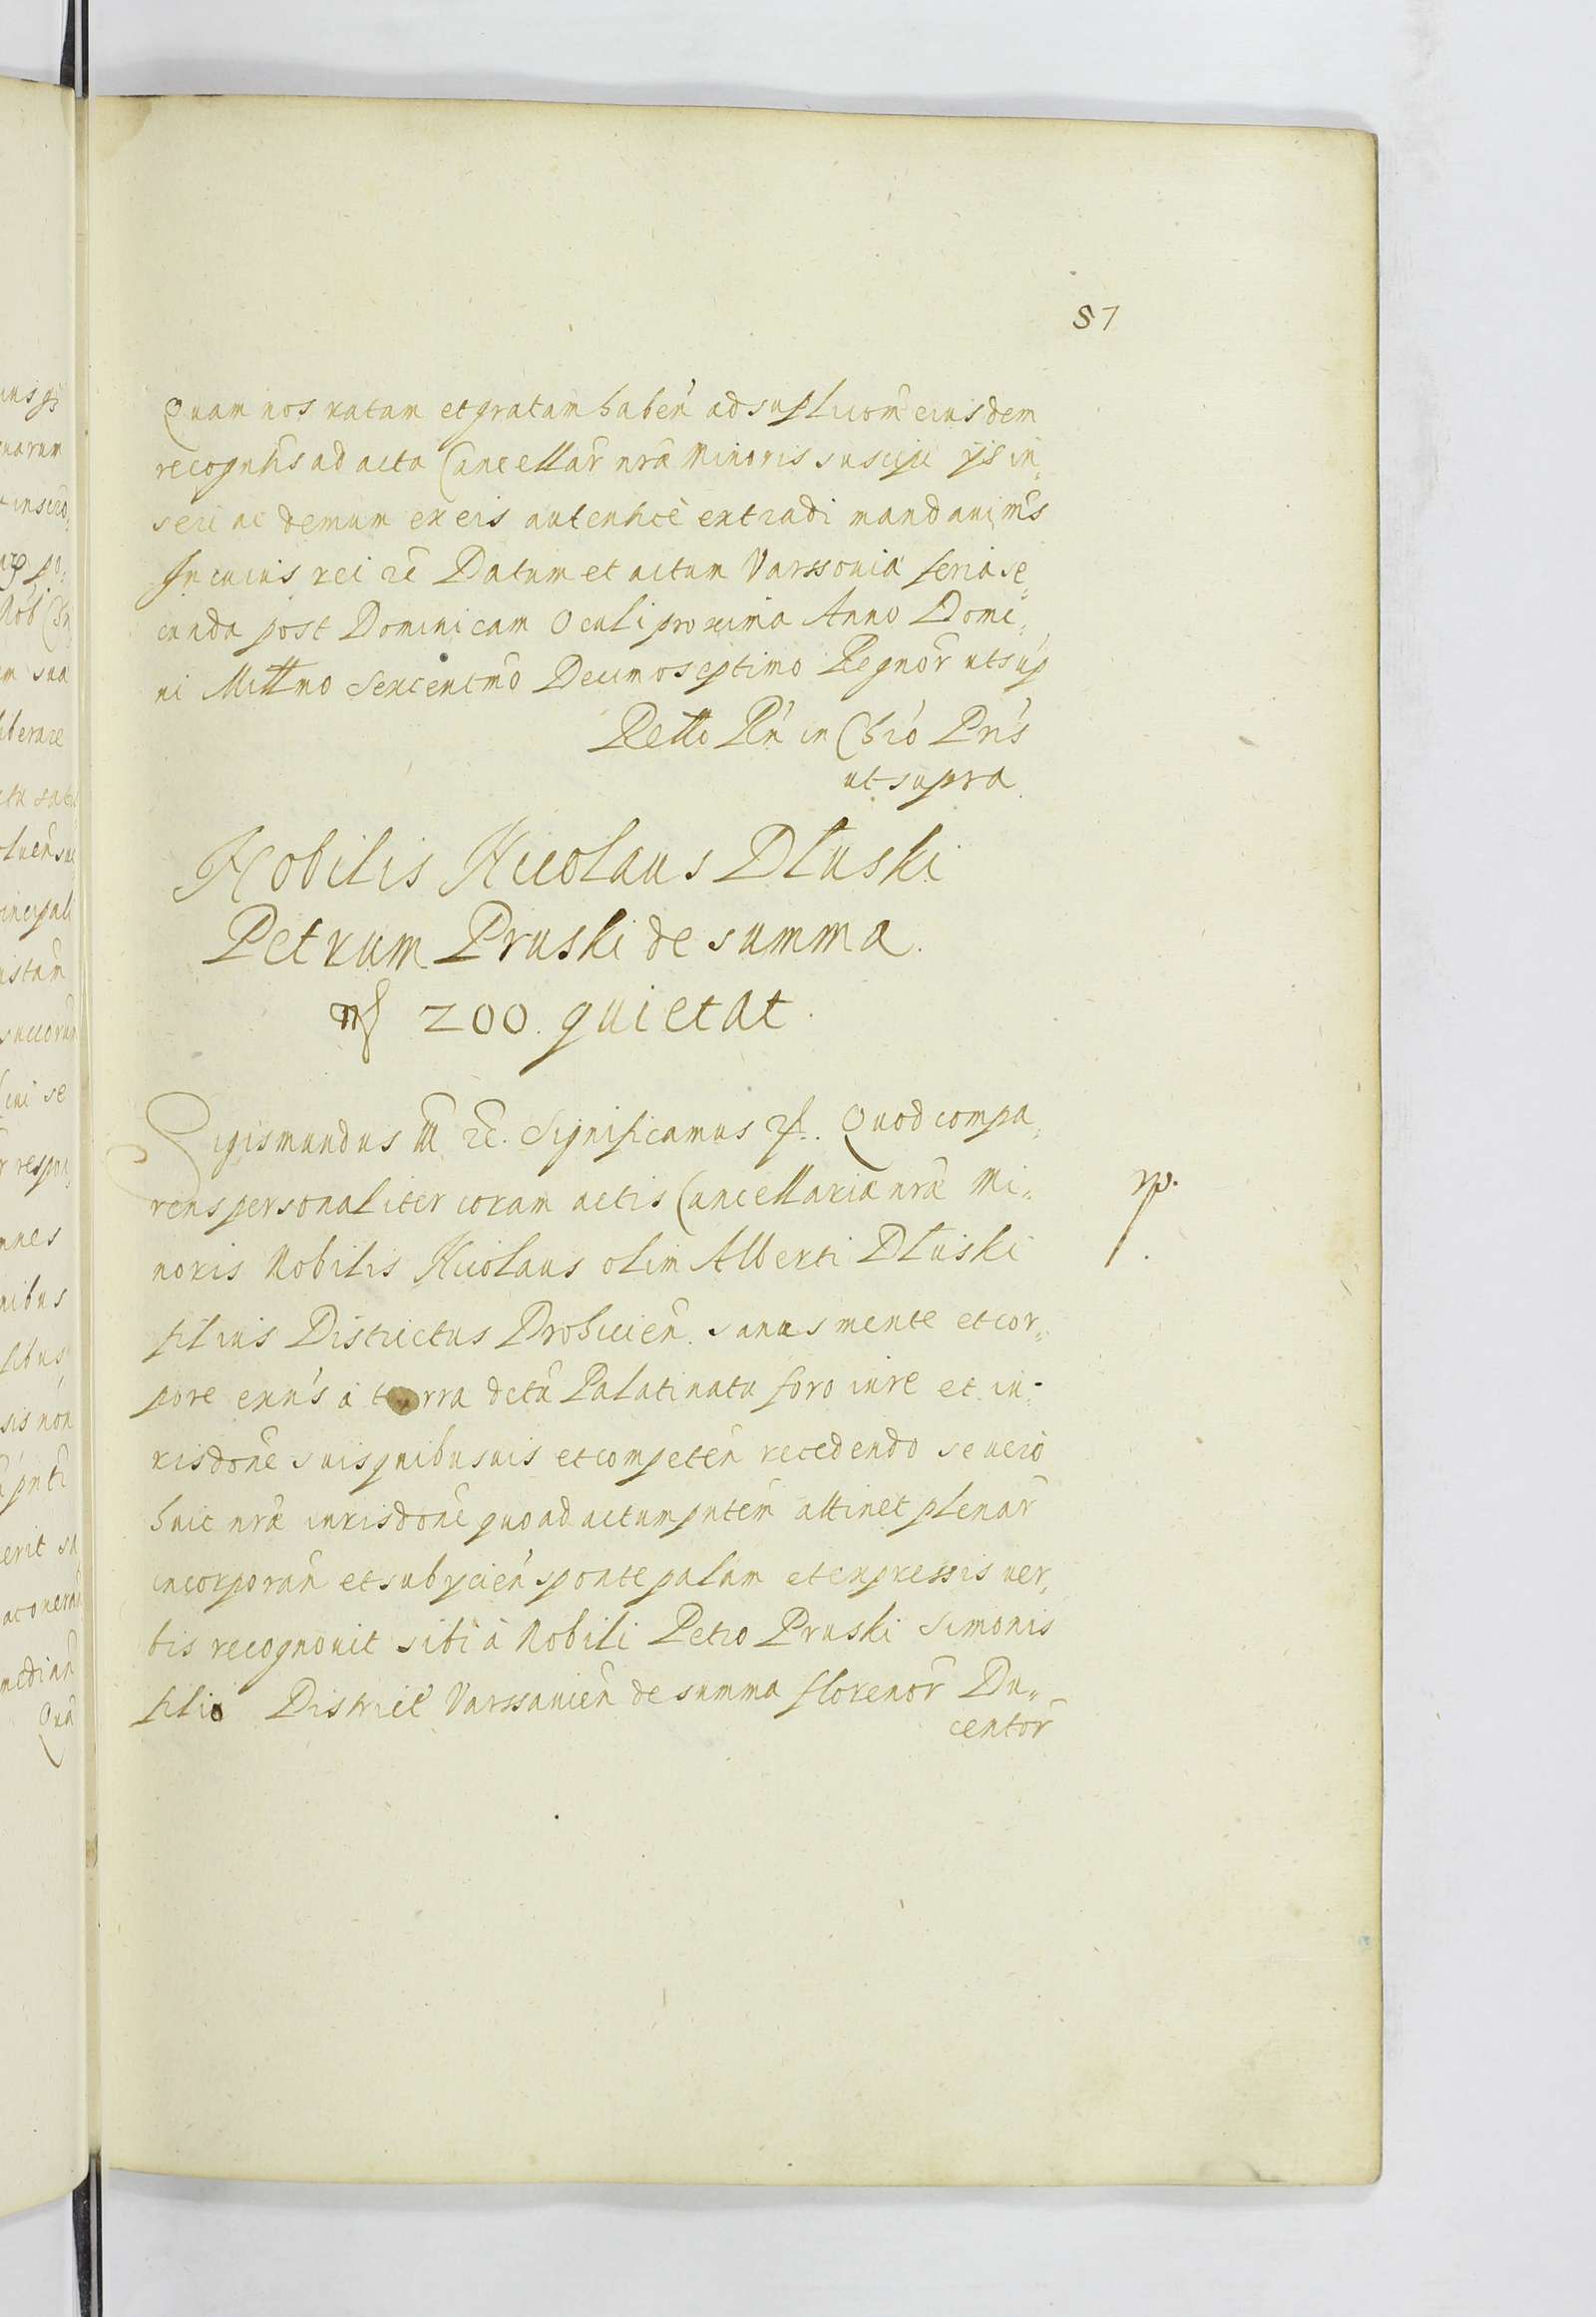 57
Quam nos ratam et gratam haben̄ ad supl̄icom̄ eiusdem
recogntis̄ ad acta Cancellar̄ nr̄a Minoris suscipi ijs in,,
seri ac demum ex eis autenticè extradi mandauim̄s
In cuius rei &c̄ Datum et actum Varssouia feria se,,
cunda post Dominicam Oculi proxima Anno Domi,,
ni Mill̄mo Sexcentm̄o Decimoseptimo Regnor̄ ut sup̄
Retto Pn̄ in Chrō Prīs
ut supra
Nobilis Nicolaus Dłuski
Petrum Pruski de summa
200. quietat.
Sigismundus III &c̄. Significamus Quod compa,,
rens personaliter coram actis Cancellariæ nr̄æ Mi,,
noris Nobilis Nicolaus olim Alberti Dłuski
filius Districtus Drohicien̄. sanus mente et cor,,
pore exn̄s à terra dictā Palatinatu foro iure et iu-
risdone̅ suis quibusuis et competen̄ recedendo se uerò
huic nr̄æ iurisdone̅ quo ad actum pn̄tem attinet plenar̄
incorporan̄ et subycien̄ sponte palam et expressis uer,,
bis recognouit sibi à Nobili Petro Pruski Simonis
filio District̄ Varssauien̄ de summa florenor̄ Du,,
centor̄